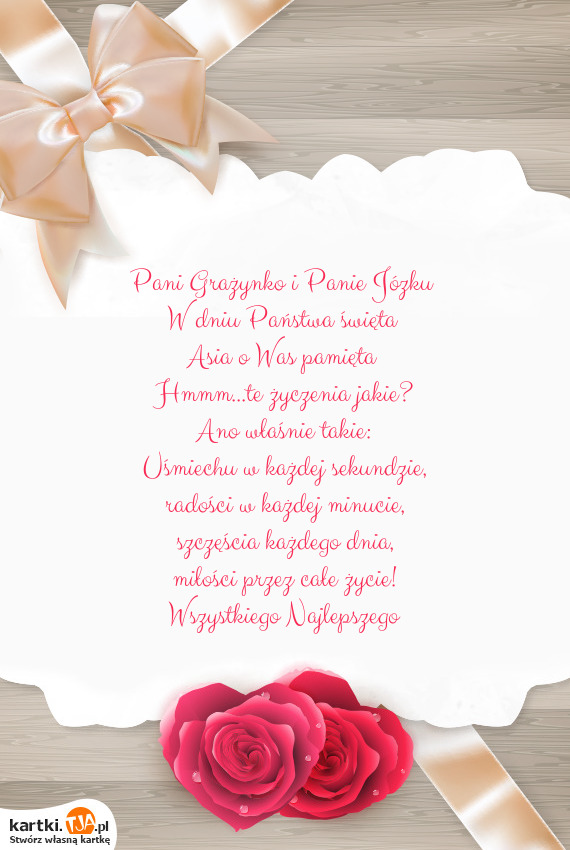 Pani Grażynko i Panie Józku
W dniu Państwa święta
Asia o Was pamięta
Hmmm...te życzenia jakie?
Ano właśnie takie:
Uśmiechu w każdej sekundzie,
radości w każdej minucie,
szczęścia każdego dnia,
miłości przez całe życie!
Wszystkiego Najlepszego
kartki.TJA.pl
Stwórz własną kartkę